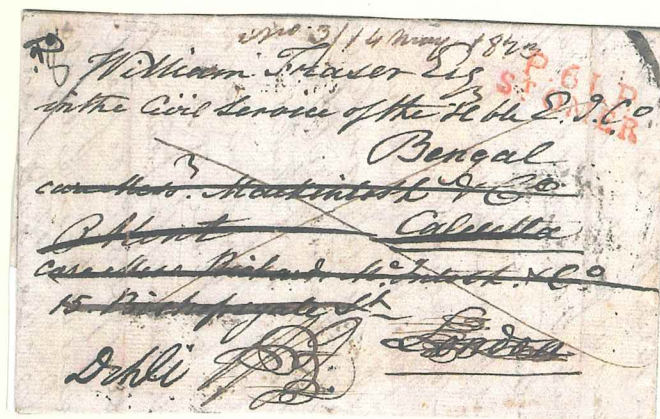 No. 3 / 14 May 1823
P.61.P.
ST OMER
William Fraser Esq
in the Civil Service of the Hble E.I.Co
Bengal
care Messrs. Mackintosh & Co
Calcutta
care Messrs Richard McIntosh & Co
15. Bishopsgate St
London
Dehli